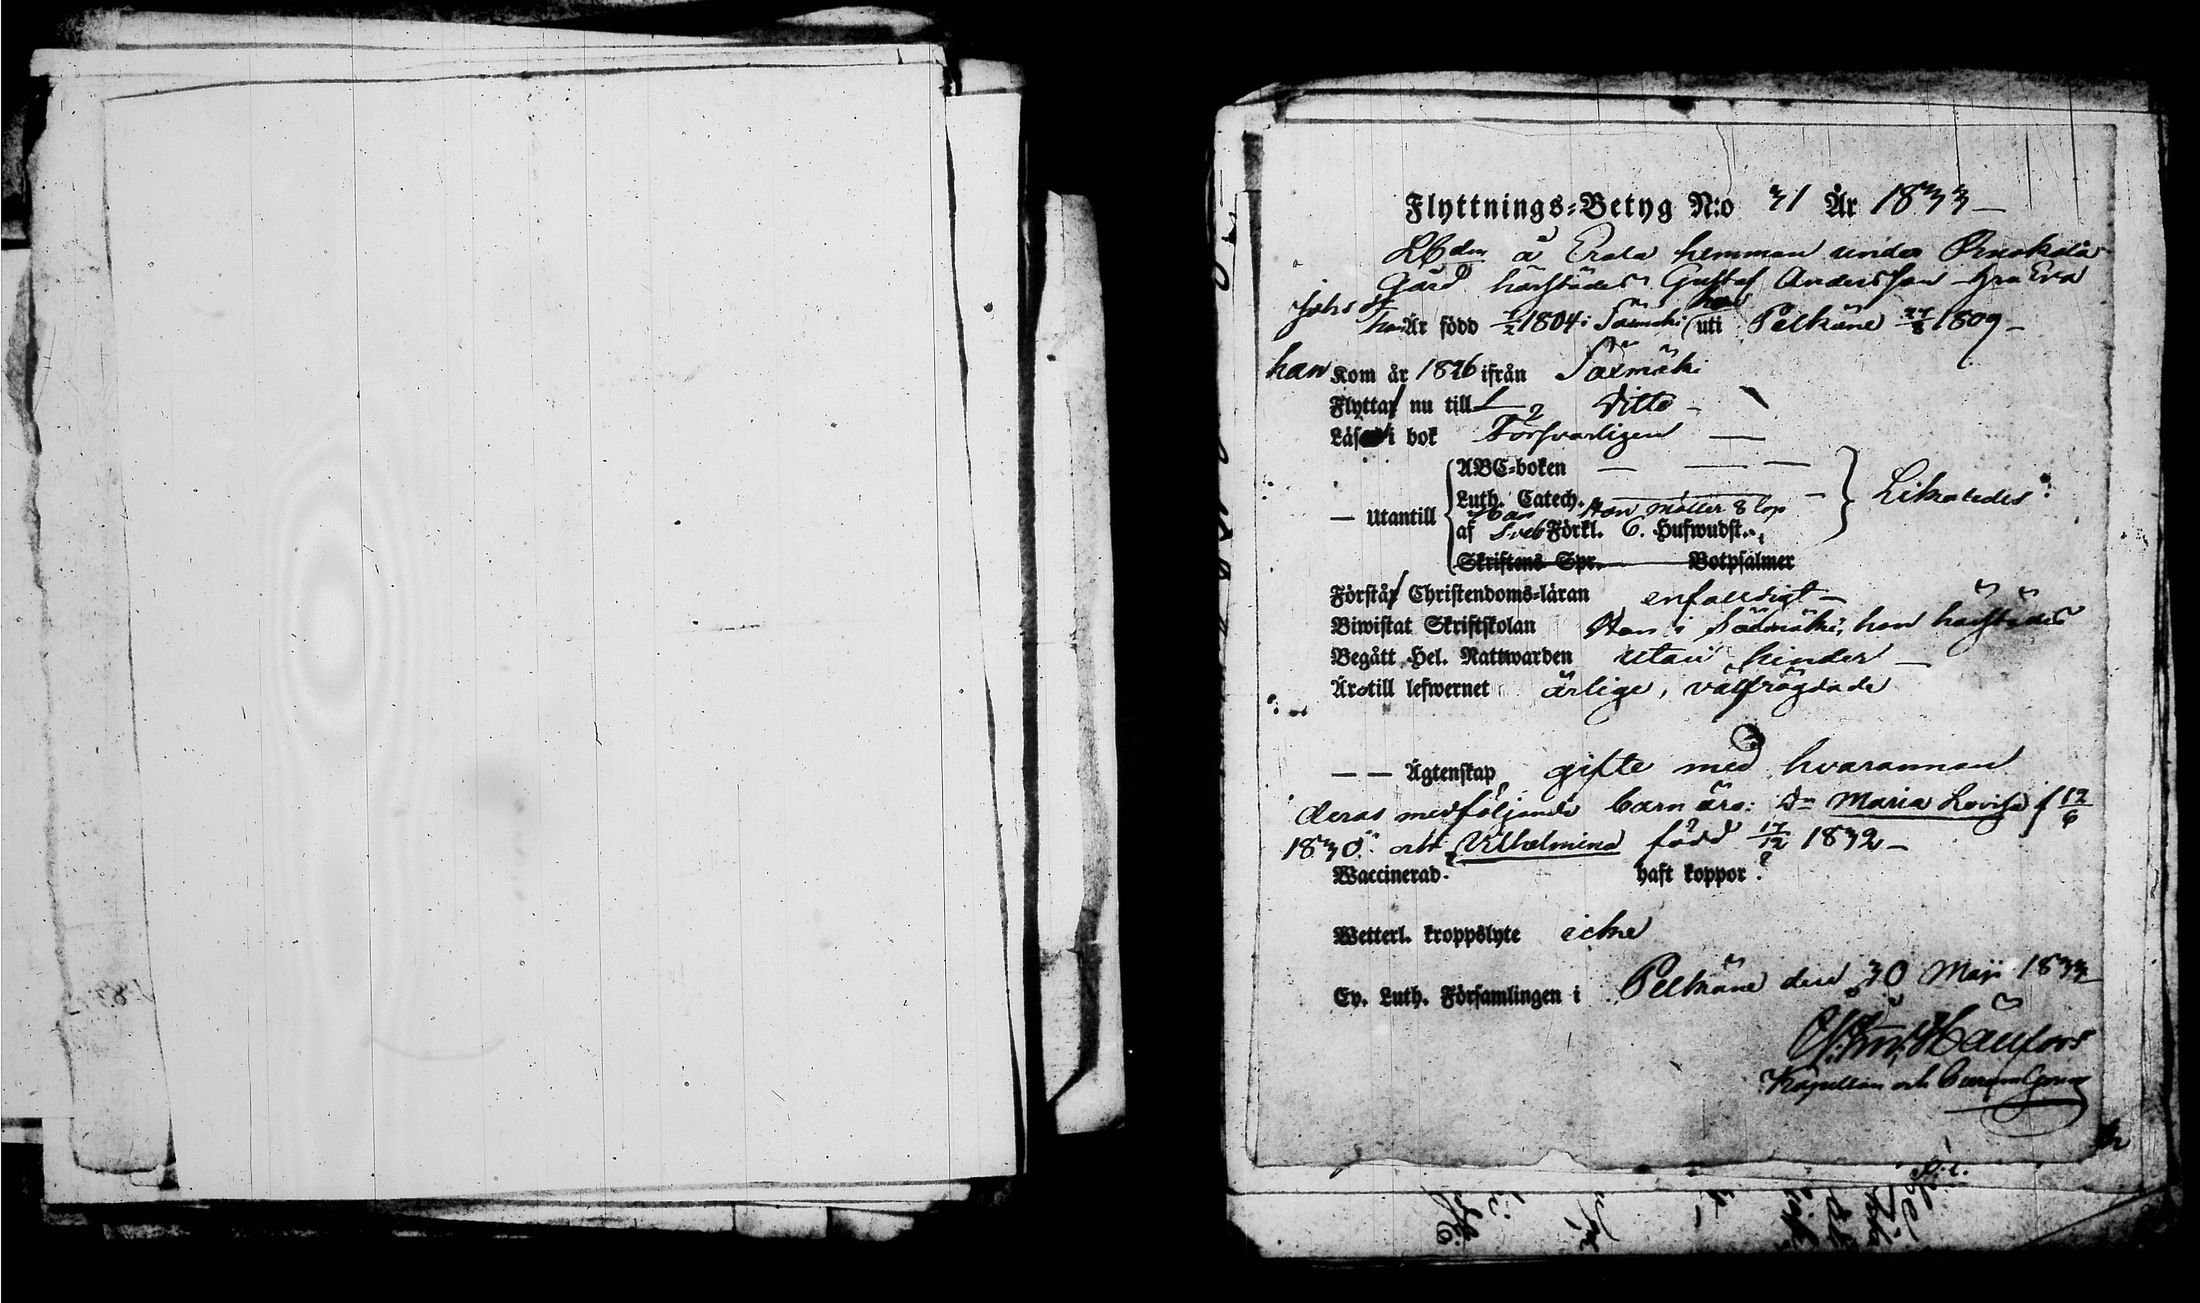 Flyttnings-Betyg N:o 31 År 1833
å Erola hemman under
Gård härstädes Gustaf Andersson hu Eva
Johsdr
Är född 1/2 1804 i Säxmäki hon uti Pelkäne 27/8 1809
han Kom år 1826 ifrån Säxmäki
Flyttar nu till Ditto
Läsa i bok Försvarligen
ABC-boken
Luth. Catech.
— Utantill af Förkl. 6. Hufwudst. Likaledes
Skriftens Spr. Botpsalmer
Förstår Christendoms-läran enfaldigt
Biwistat Skriftskolan Han i Säxmäki, hon härstädes
Begått Hel. Nattwarden utan hinder
Äro till lefwernet ärlige, välfrägdade
— — Ägtenskap gifte med hvarannan
deras medföljande barn äro: Dr Maria Lovisa f 12/6
1830 och Vilhelmina född 17/12 1832
Waccinerad? haft koppor?
Wetterl. kroppslyte icke
Ev. Luth. Församlingen i Pelkäne den 30 Maji 1833
Kapellan och